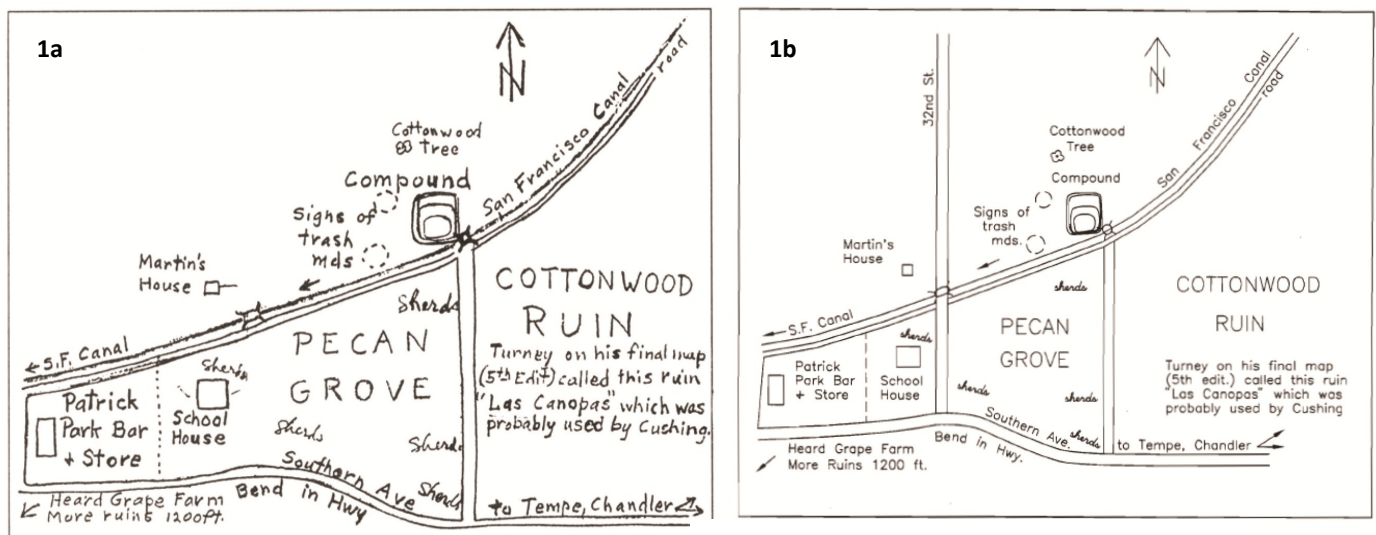 1a
N
San Francisco Canal
road
Cottonwood
Tree
Compound
Signs of
trash
mds
Martin's
House
COTTONWOOD
RUIN
Turney on his final map
(5th Edit) called this ruin
"Las Canopas" which was
probably used by Cushing.
Sherds
PECAN
GROVE
S.F. Canal
Sherds
School
House
Patrick
Park Bar
+ Store
Sherds
Sherds
Sherds
Southern Ave
Bend in Hwy
Heard Grape Farm
More ruins 1200ft.
to Tempe, Chandler
1b
N
32nd St.
San Francisco Canal
road
Cottonwood
Tree
Compound
Signs of
trash
mds.
Martin's
House
COTTONWOOD
RUIN
Turney on his final map
(5th edit.) called this ruin
"Las Canopas" which was
probably used by Cushing
sherds
PECAN
GROVE
S.F. Canal
sherds
School
House
Patrick
Park Bar
+ Store
sherds
sherds
sherds
Southern Ave.
Bend in Hwy.
Heard Grape Farm
More Ruins 1200 ft.
to Tempe, Chandler